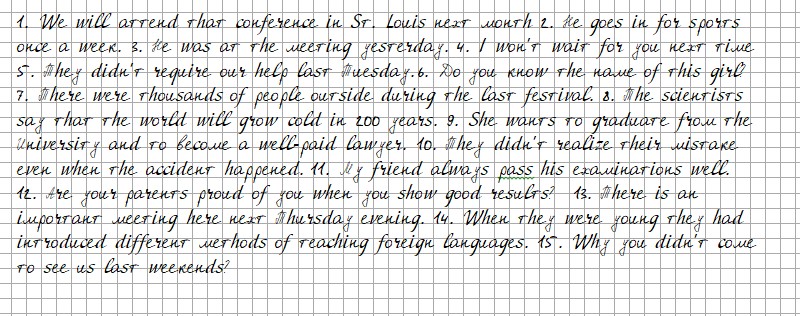 1. We will attend that conference in St. Louis next month 2. He goes in for sports
once a week. 3. He was at the meeting yesterday. 4. I won't wait for you next time
5. They didn't require our help last Tuesday.6. Do you know the name of this girl?
7. There were thousands of people outside during the last festival. 8. The scientists
say that the world will grow cold in 200 years. 9. She wants to graduate from the
University and to become a well-paid lawyer. 10. They didn't realize their mistake
even when the accident happened. 11. My friend always pass his examinations well.
12. Are your parents proud of you when you show good results? 13. There is an
important meeting here next Thursday evening. 14. When they were young they had
introduced different methods of teaching foreign languages. 15. Why you didn't come
to see us last weekends?